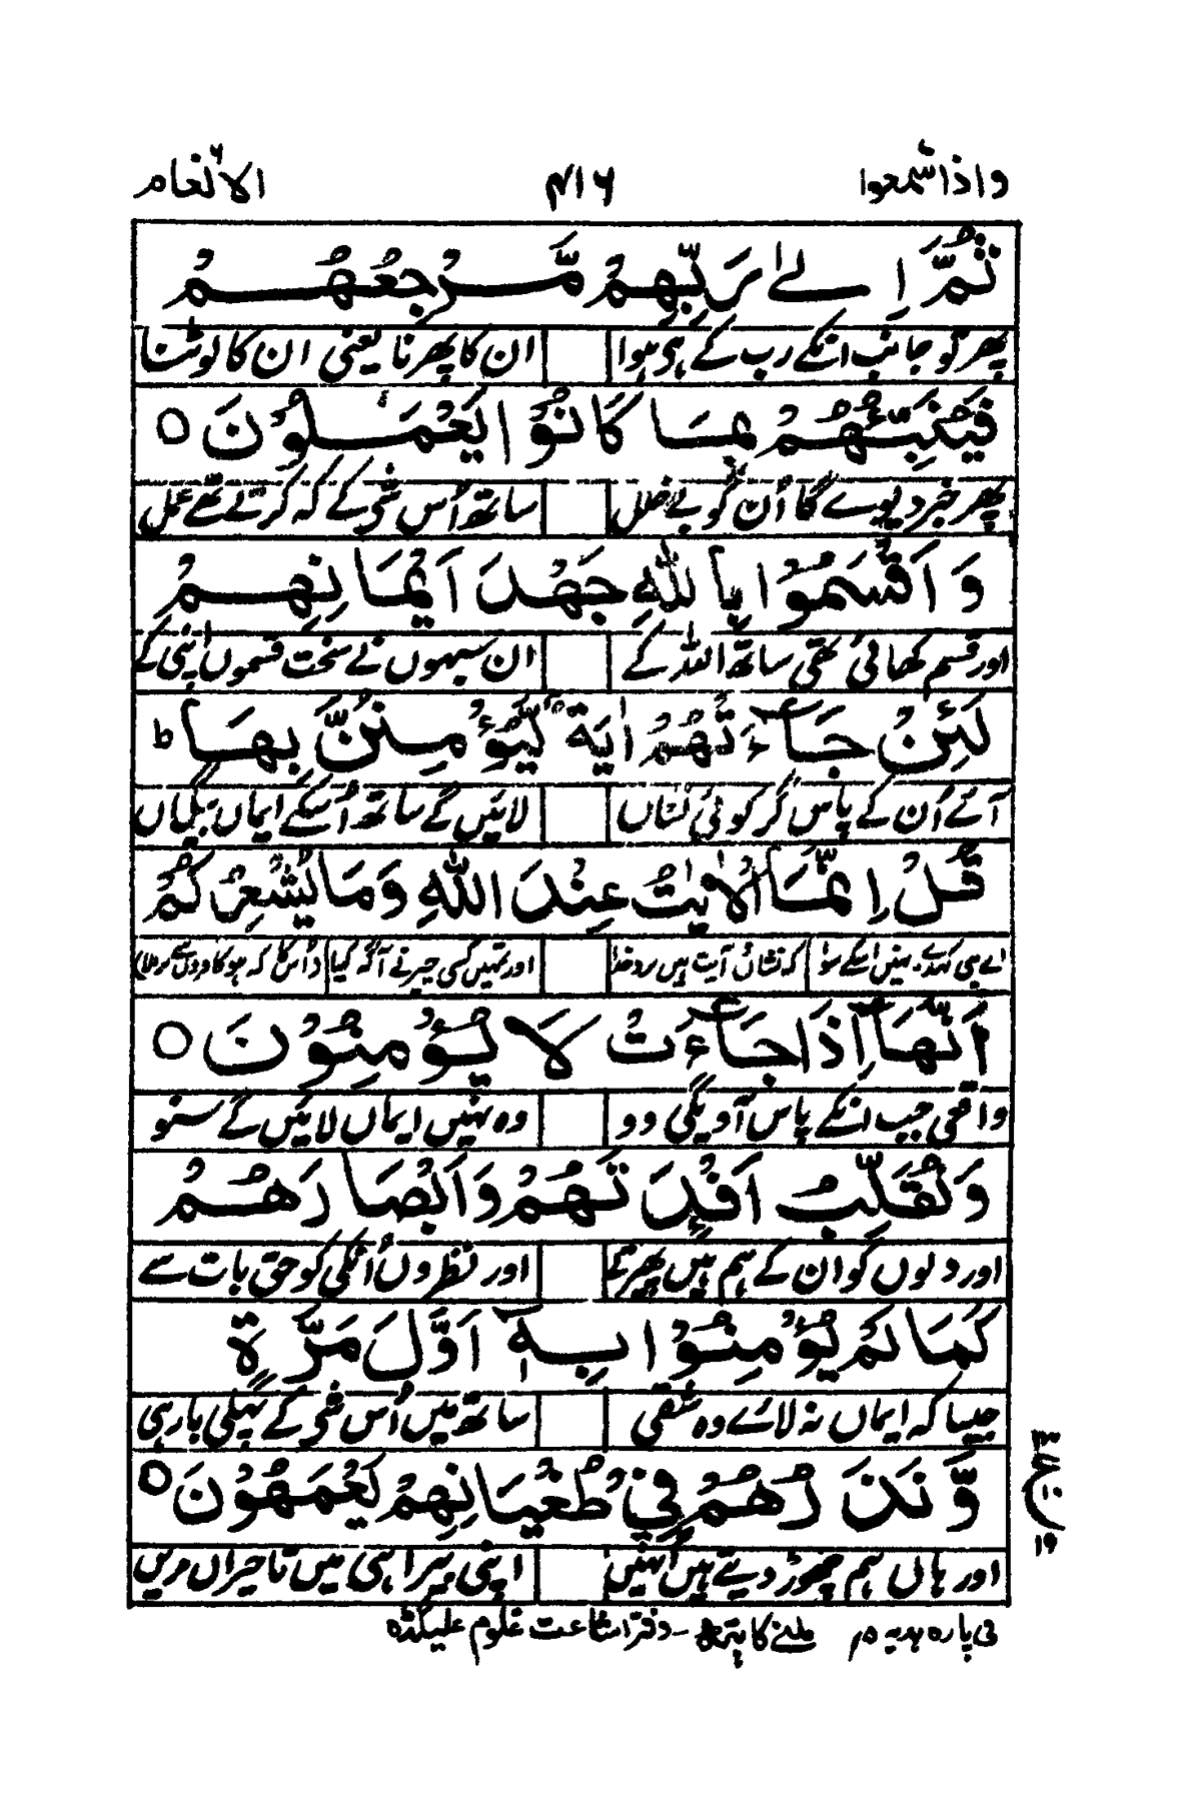 واذا سمعوا ۴۱۶ الانعام
ثُمَّ اِلٰى رَبِّهِمْ مَّرْجِعُهُمْ
پھر تو جانب انکے رب کے ہی ہوا ان کا پھرنا یعنی ان کا لوٹنا
فَيُنَبِّئُهُمْ بِمَا كَانُوْا يَعْمَلُوْنَ ○
پھر خبر دیوے گا اُن کو بے خلل ساتھ اُس شی کے کہ کرتے تھے عمل
وَاَقْسَمُوْا بِاللّٰهِ جَهْدَ اَيْمَانِهِمْ
اور قسم کھائی تھی ساتھ اللہ کے ان سبھوں نے سخت قسموں اپنی کے
لَئِنْ جَآءَتْهُمْ اٰيَةٌ لَّيُؤْمِنُنَّ بِهَا ط
آئے اُن کے پاس گر کوئی نشاں لائیں گے ساتھ اُسکے ایماں بیگماں
قُلْ اِنَّمَا الْاٰيٰتُ عِنْدَ اللّٰهِ وَمَا يُشْعِرُكُمْ
اے نبی کہدے نہیں اسکے سوا کہ نشان آیت ہیں نزد خدا اور تمہیں کسی چیز نے آگہ کیا
اَنَّهَآ اِذَا جَآءَتْ لَا يُؤْمِنُوْنَ ○
واقعی جب انکے پاس آویگی وو وہ نہیں ایماں لائیں گے سنو
وَنُقَلِّبُ اَفْئِدَتَهُمْ وَاَبْصَارَهُمْ
اور دلوں کو ان کے ہم ہیں پھیرتے اور نظروں اُنکی کو حق بات سے
كَمَا لَمْ يُؤْمِنُوْا بِهٖٓ اَوَّلَ مَرَّةٍ
جیسا کہ ایماں نہ لائے وہ شقی ساتھ میں اُس شی کے پہلی بار ہی
وَّنَذَرُهُمْ فِيْ طُغْيَانِهِمْ يَعْمَهُوْنَ ○
اور ہاں ہم چھوڑ دیتے ہیں اُنہیں اپنی بیراہی میں تا حیراں مریں
ع ۱۹
فی پارہ ہدیہ ۵ر ملنے کا پتہ - دفتر اشاعت علوم علیگڈہ